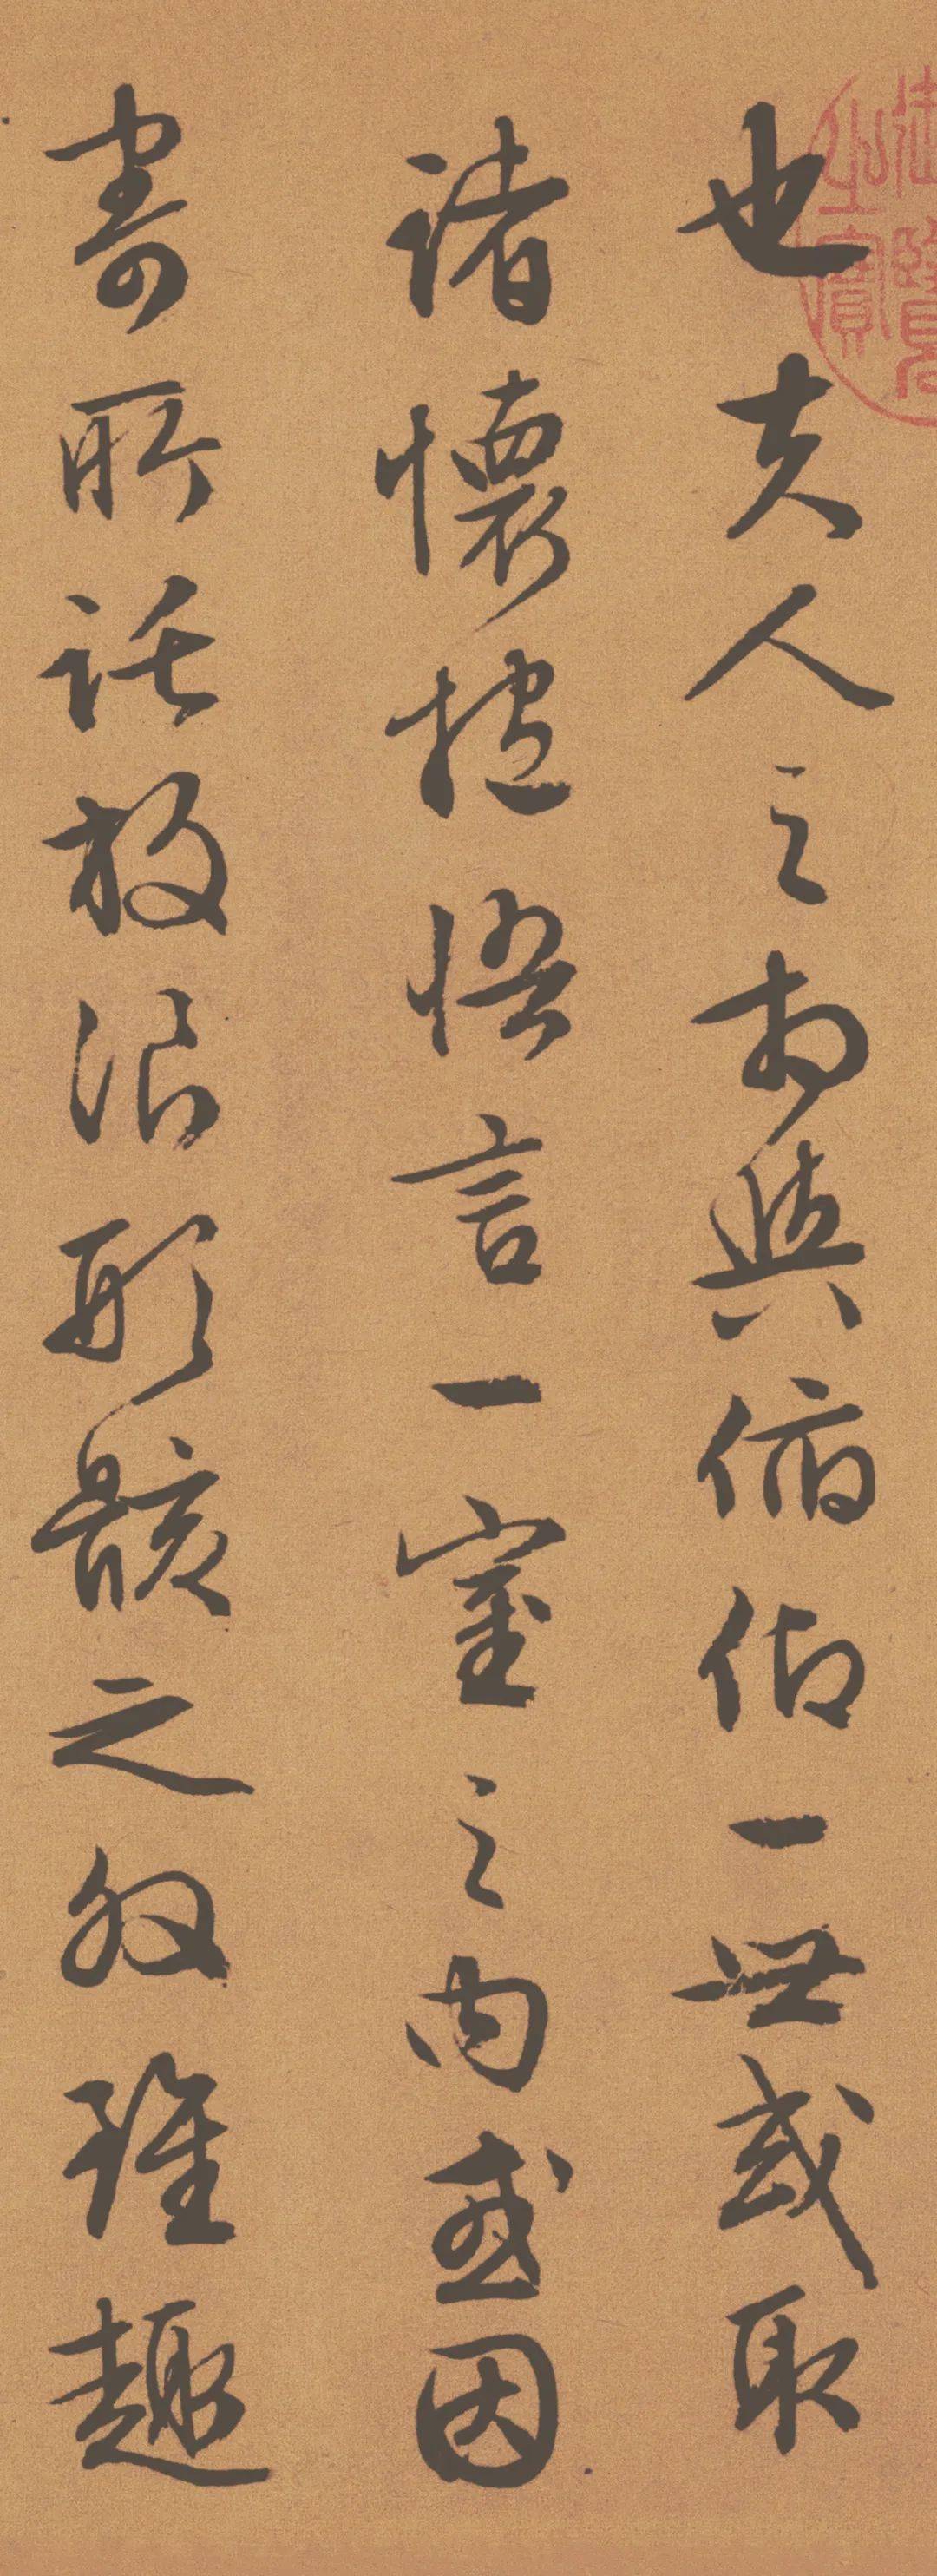 御覽
之寶
也夫人之相與俯仰一世或取
諸懷抱悟言一室之內或因
寄所託放浪形骸之外雖趣